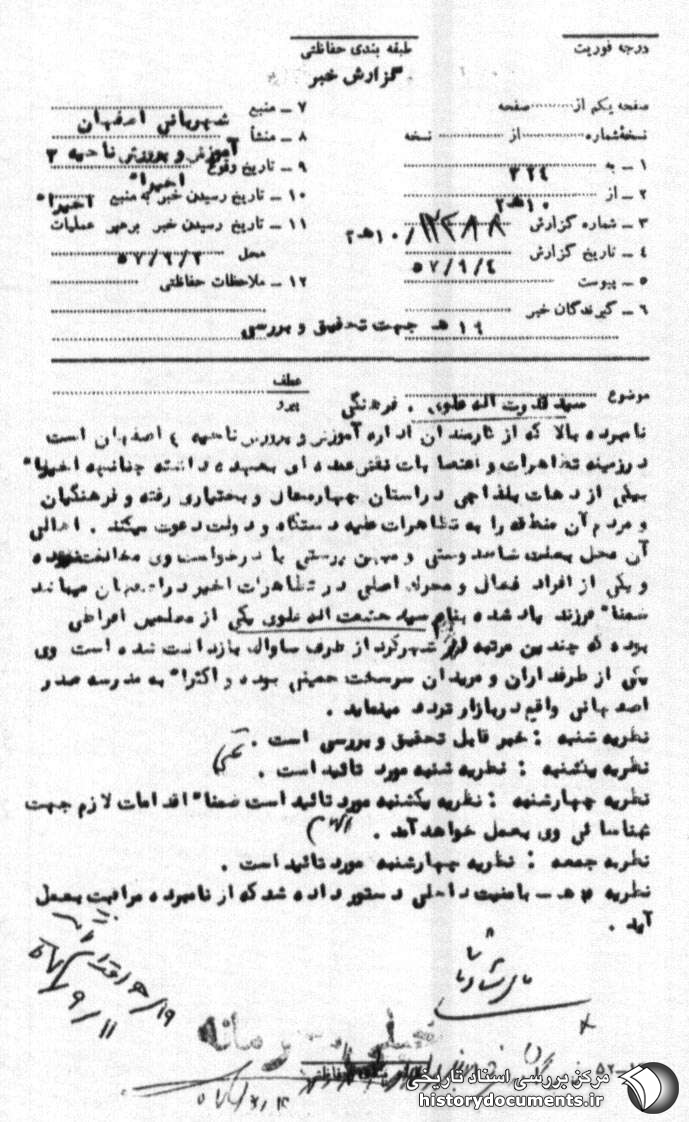 درجه فوریت
طبقه بندی حفاظتی
گزارش خبر
صفحه یکم از صفحه
نسخه شماره از نسخه
۱ ــ به ۳۲۴
۲ ــ از ۱۰هـ۲
۳ ــ شماره گزارش ۱۰هـ۲/
۴ ــ تاریخ گزارش ۵۷/۹/۴
۵ ــ پیوست
۶ ــ گیرندگان خبر
۷ ــ منبع شهربانی اصفهان
۸ ــ منشأ آموزش و پرورش ناحیه ۳
۹ ــ تاریخ وقوع اخیرا"
۱۰ ــ تاریخ رسیدن خبر به منبع اخیرا"
۱۱ ــ تاریخ رسیدن خبر برهبر عملیات
محل ۵۷/۹/۲
۱۲ ــ ملاحظات حفاظتی
۱۹ هـ جهت تحقیق و بررسی
موضوع سید قدرت اله علوی . فرهنگی
عطف
پیرو
نامبرده بالا که از کارمندان اداره آموزش و پرورش ناحیه ۴ اصفهان است
درزمینه تظاهرات و اعتصابات نقش عمده ای بعهده داشته چنانچه اخیرا"
بیکی از دهات بلداجی در استان چهارمحال و بختیاری رفته و فرهنگیان
و مردم آن منطقه را به تظاهرات علیه دستگاه و دولت دعوت میکند . اهالی
آن محل بعلت شاهدوستی و میهن پرستی با درخواست وی مخالفت نموده
و یکی از افراد فعال و محرک اصلی در تظاهرات اخیر در اصفهان میباشد
ضمنا" فرزند یاد شده بنام سید حشمت اله علوی یکی از معلمین افراطی
بوده که چندین مرتبه در شهرکرد از طرف ساواک بازداشت شده است وی
یکی از طرفداران و مریدان سرسخت خمینی بوده و اکثرا" به مدرسه صدر
اصفهانی واقع در بازار تردد مینماید .
نظریه شنبه : خبر قابل تحقیق و بررسی است .
نظریه یکشنبه : نظریه شنبه مورد تائید است .
نظریه چهارشنبه : نظریه یکشنبه مورد تائید است ضمنا" اقدامات لازم جهت
شناسائی وی بعمل خواهد آمد .
نظریه جمعه : نظریه چهارشنبه مورد تائید است .
نظریه هـ ــ بامنیت داخلی دستور داده شد که از نامبرده مراقبت بعمل
آید .
۵۷/۹/۱۱
خیلی محرمانه
مرکز بررسی اسناد تاریخی
historydocuments.ir